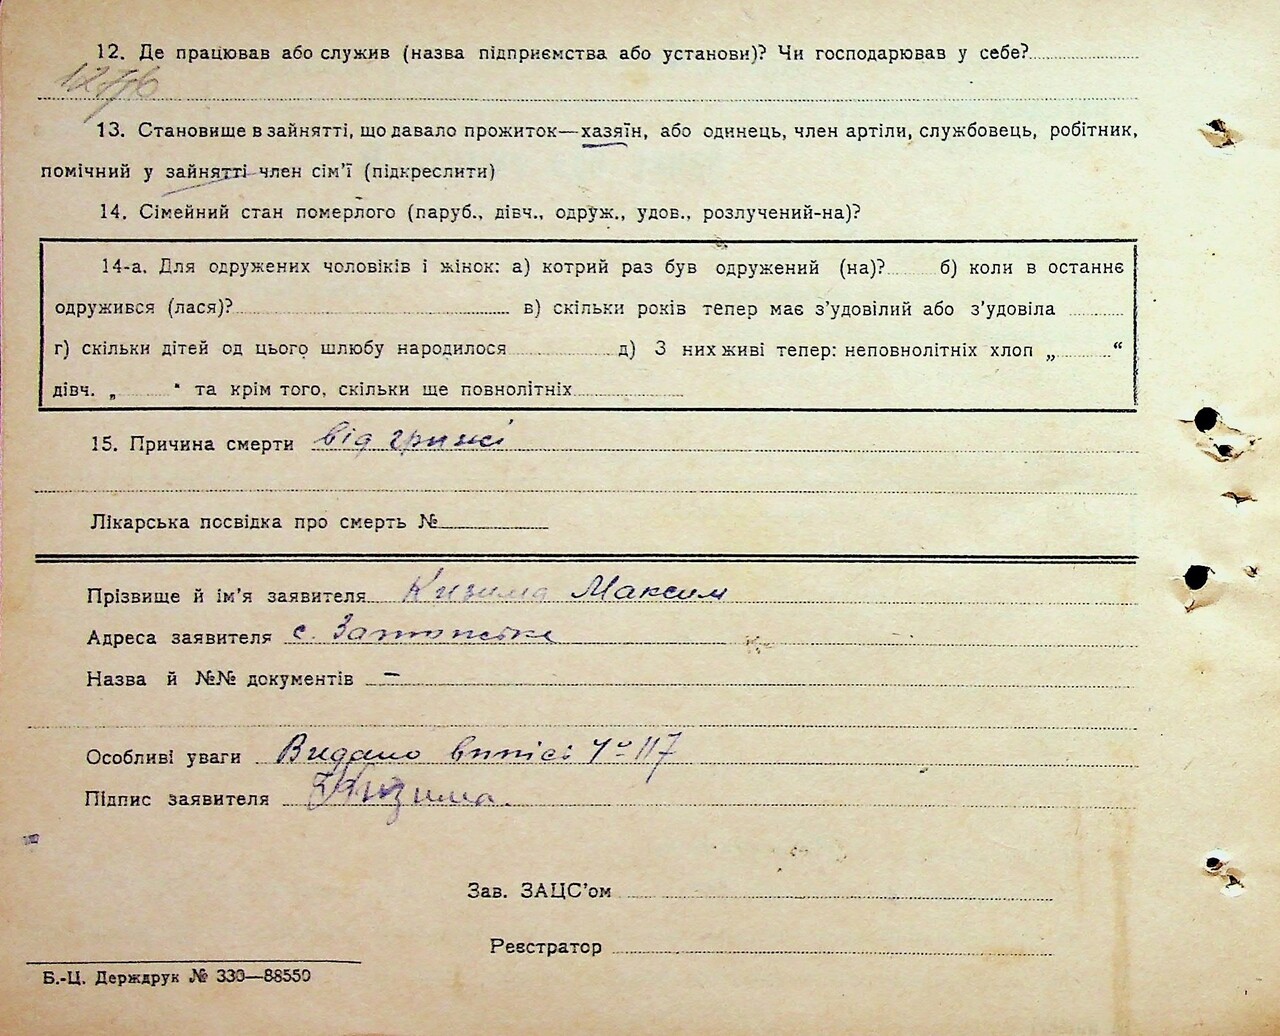 12. Де працював або служив (назва підприємства або установи)? Чи господарював у себе?
13. Становище в зайнятті, що давало прожиток—хазяїн, або одинець, член артіли, службовець, робітник,
помічний у зайнятті член сім’ї (підкреслити)
14. Сімейний стан померлого (паруб., дівч., одруж., удов., розлучений-на)?
14-а. Для одружених чоловіків і жінок: а) котрий раз був одружений (на)? б) коли в останнє
одружився (лася)? в) скільки років тепер має з’удовілий або з’удовіла
г) скільки дітей од цього шлюбу народилося д) З них живі тепер: неповнолітніх хлоп „ “
дівч. „ “ та крім того, скільки ще повнолітніх
15. Причина смерти від грижі
Лікарська посвідка про смерть №
Прізвище й ім’я заявителя Кизима Максим
Адреса заявителя с.
Назва й №№ документів —
Особливі уваги Видано 117
Підпис заявителя Кизима
Зав. ЗАЦС’ом
Реєстратор
Б.-Ц. Держдрук № 330—88550